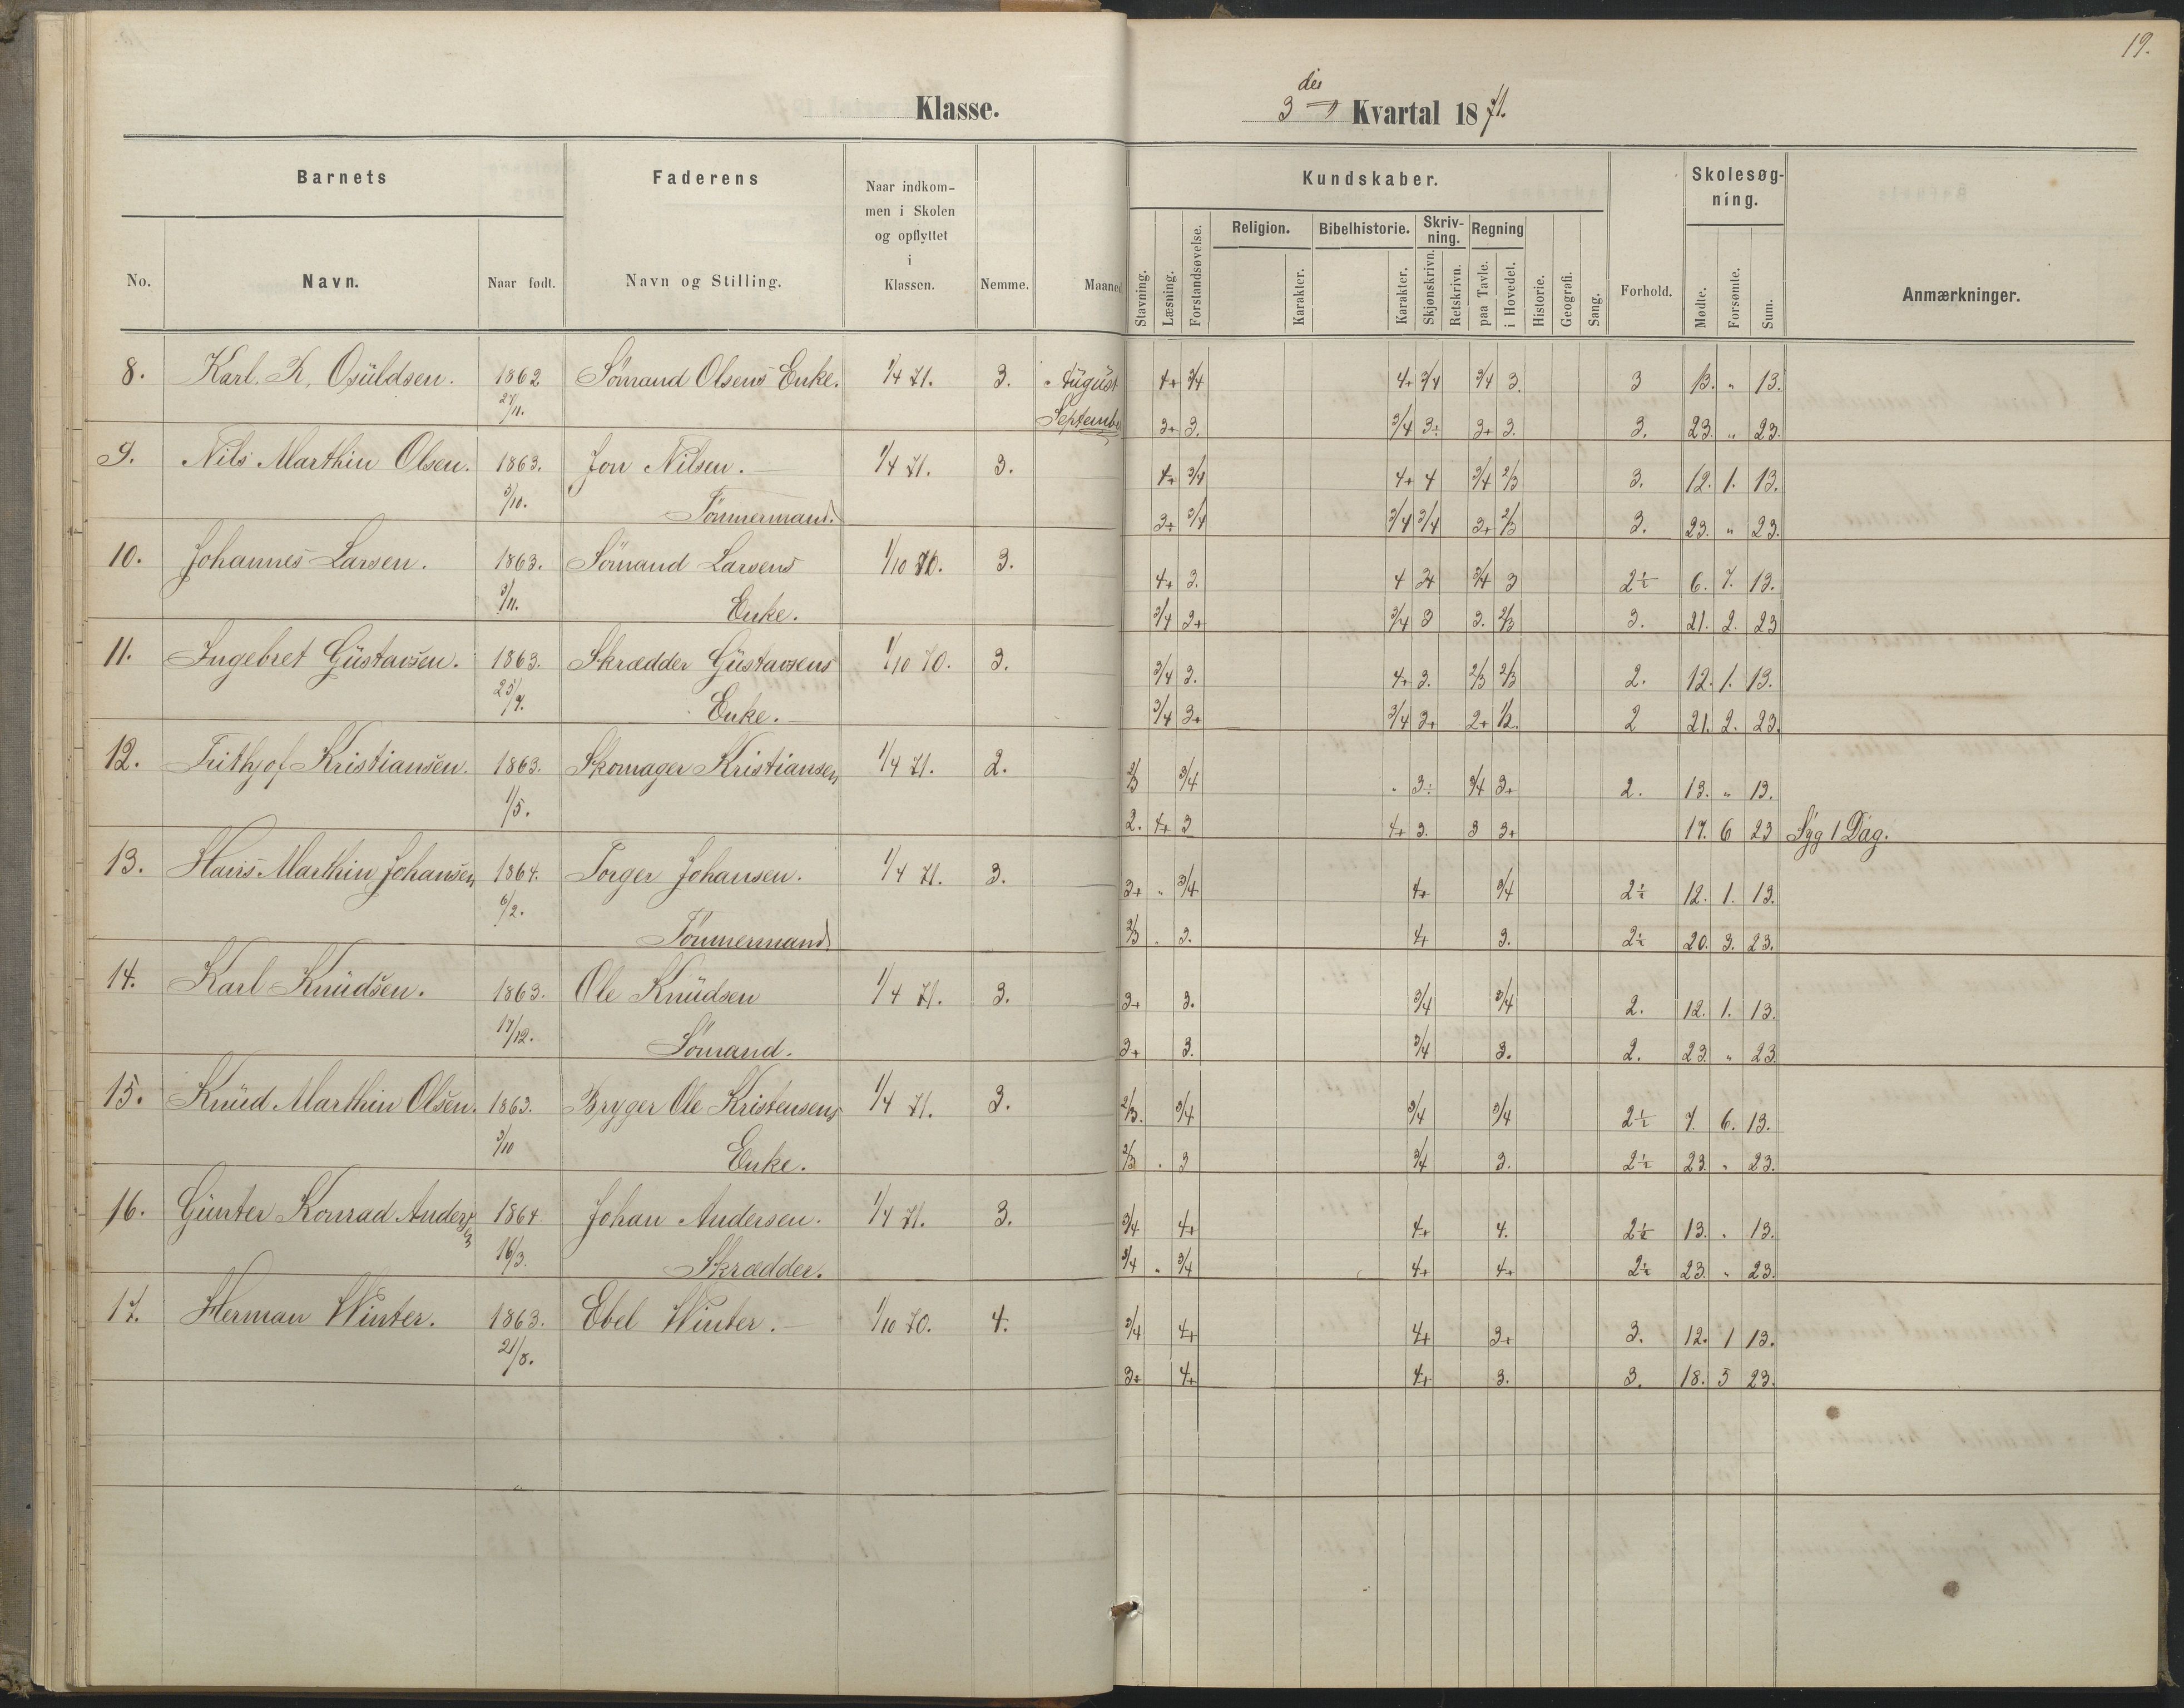 19.
Klasse.
3die Kvartal 1871.
Barnets
Faderens
Naar indkom-
men i Skolen
og opflyttet
i
Klassen.
Kundskaber.
Skolesøg-
ning.
No.
Navn.
Naar født.
Navn og Stilling.
Nemme.
Maaned
Stavning.
Læsning.
Forstandsøvelse.
Religion.
Karakter.
Bibelhistorie.
Karakter.
Skriv-
ning.
Skjønskrivn.
Retskrivn.
Regning
paa Tavle.
i Hovedet.
Historie.
Geografi.
Sang.
Forhold.
Mødte.
Forsømte.
Sum.
Anmærkninger.
8. Karl. K. Osuldsen. 1862 Sömand Olsens Enke. 1/4 71. 3. August 4+ 3/4 4+ 3/4 3/4 3. 3 13. " 13.
27/11. September 3+ 3. 3/4 3÷ 3+ 3. 3. 23. " 23.
9. Nils Marthin Olsen. 1863. Jon Nilsen. 1/4 71. 3. 4+ 3/4 4+ 4 3/4 2/3 3. 12. 1. 13.
3/10. Tömmermand. 3÷ 3/4 3/4 3/4 3+ 2/3 3. 23. " 23.
10. Johannes Larsen. 1863. Sömand Larsens 1/10 70. 3. 4+ 3. 4 3/4 3/4 3 2÷ 6. 7. 13.
3/11. Enke. 3/4 3+ 3/4 3 3. 2/3 3. 21. 2. 23
11. Ingebret Gustavsen. 1863. Skrædder Gustavsens 1/10 70. 3. 3/4 3. 4+ 3. 2/3 2/3 2. 12. 1. 13.
25/9. Enke. 3/4 3+ 3/4 3+ 2+ 1/2. 2 21. 2. 23.
12. Frithjof Kristiansen. 1863. Skomager Kristiansen 1/4 71. 2. 2/3 3/4 " 3÷ 3/4 3+ 2. 13. " 13.
1/5. 2. 4+ 3 4+ 3. 3 3+ 17. 6 23 Syg 1 Dag.
13. Hans Marthin Johansen 1864. Torger Johansen. 1/4 71. 3. 3+ " 3/4 4+ 3/4 2÷ 12. 1. 13.
6/2. Tömmermand. 2/3 " 3. 4+ 3. 2÷ 20. 3. 23.
14. Karl Knudsen. 1863. Ole Knudsen 1/4 71. 3. 3+ 3. 3/4 3/4 2. 12. 1. 13.
17/12. Sömand. 3+ 3. 3/4 3. 2. 23. " 23
15. Knud Marthin Olsen. 1863. Brygger Ole Kristensens 1/4 71. 3. 2/3. 3/4 3/4 3/4 2÷ 7. 6. 13.
3/10 Enke. 2/3 " 3 3/4 3. 2÷ 23. " 23.
16. Gunter Konrad Andersen 1864 Johan Andersen. 1/4 71. 3. 3/4 4+ 4+ 4. 2÷ 13. " 13.
16/3. Skrædder. 3/4 " 3/4 4+ 4+ 2÷ 23. " 23.
17. Herman Winter. 1863. Ebel Winter. 1/10 70. 4. 3/4 4+ 4+ 3+ 3. 12. 1 13.
21/8. 3+ 4+ 4+ 3. 3. 18. 5 23.